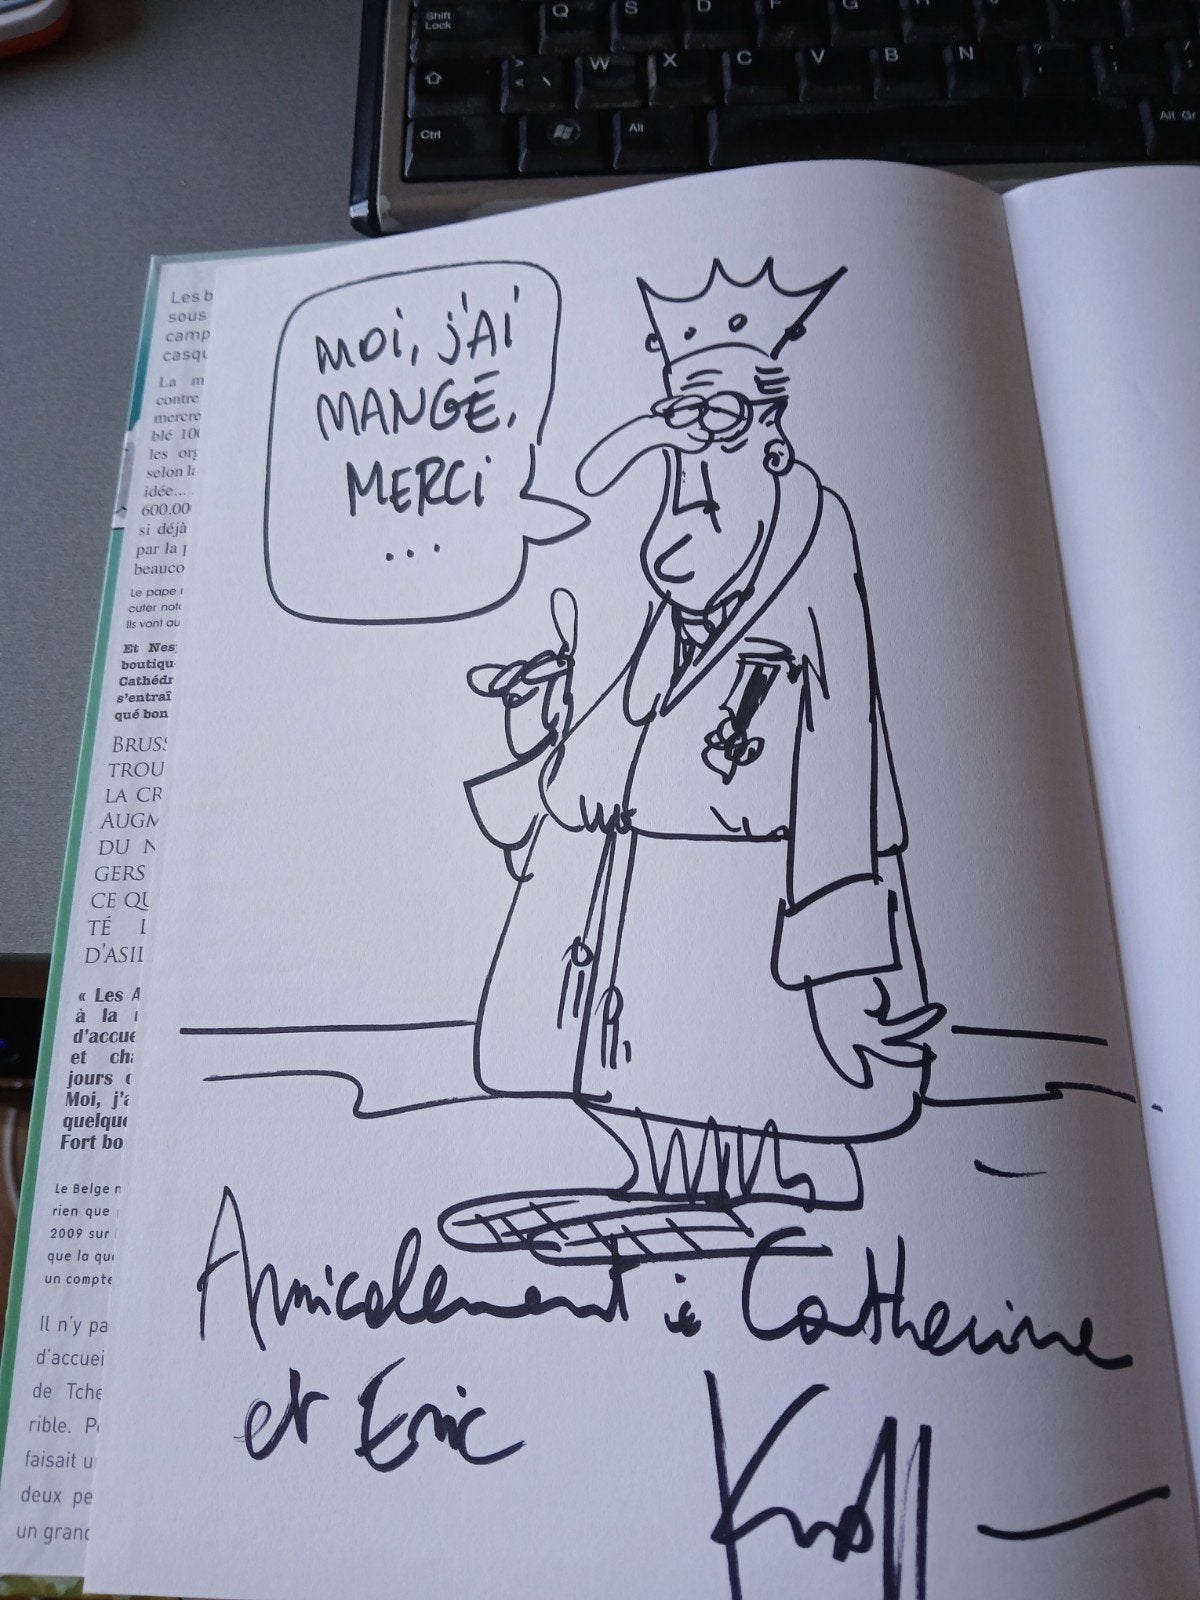 Shift
Lock
Q
S
D
F
G
H
J
>
<
\
W
X
C
V
B
N
?
,
.
;
Ctrl
Alt
Alt Gr
MOI, J'AI
MANGÉ,
MERCI
...
Les b
sous
camp
casqu
La m
contre
mercre
blé 100
les org
selon la
idée...
600.00
si déjà
par la p
beauco
Le pape r
cuter noto
Ils vont au
Et Nes
boutiqu
Cathédr
s'entraî
qué bon
BRUSS
TROU
LA CR
AUGM
DU N
GERS
CE QU
TÉ L
D'ASIL
« Les A
à la
d'accue
et cha
jours
Moi, j'a
quelque
Fort bo
Le Belge n
rien que
2009 sur
que la que
un compte
Il n'y pa
d'accuei
de Tche
rible. Pe
faisait u
deux pe
un grand
Amicalement à Catherine
et Eric
Kroll